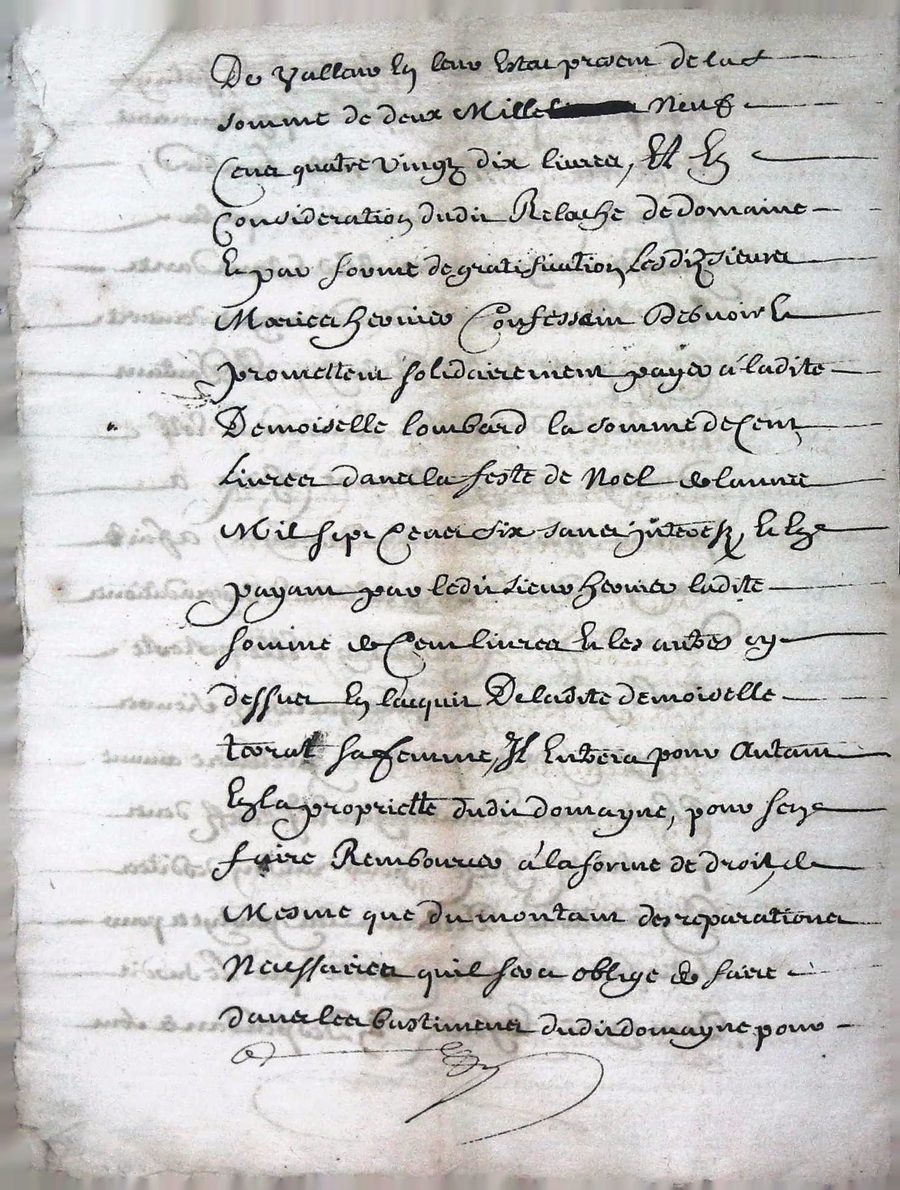 De Valleur En leur Estat present de la d
somme de deux Mille Neuf
Cens quatre vingz dix livres, Et En
Consideration dudit Relache de domaine
Et par forme de gratiffication Lesdiz sieurs
hervier Confessent Debvoir Et
promettent solidairement payer á ladite
Demoiselle lombard la somme de Cent
Livres dans la feste de Noel de lannee
Mil sept Cens six sans jnterestz, Et En
payant par ledit sieur hervier ladite
somme de Cent livres Et les autres cy
dessus En lacquit De ladite demoiselle
terrat sa femme, Il Entrera pour Autant
En la proprietté dudit domayne, pour sen
faire Rembourcer á la forme de droit, de
Mesme que du montant des reparations
Necessaires quil sera oblige de faire
dans les bastimens dudit domayne pour